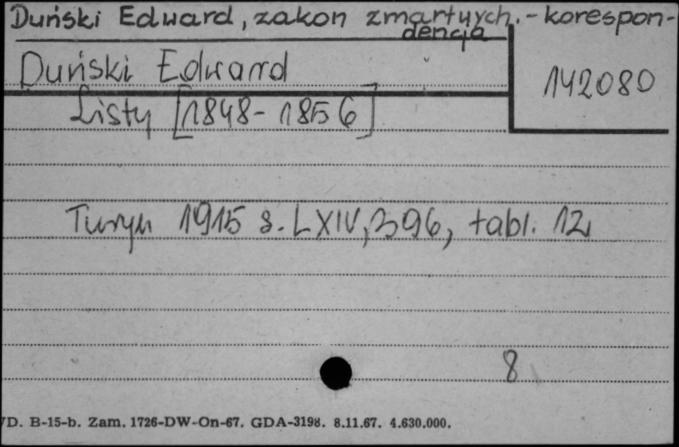 Duński Edward, zakon zmartwych. - korespon-
dencja
Duński Edward
142080
Listy [1848-1856]
Turyn 1915 s. LXIV, 396, tabl. 12
8
D. B-15-b. Zam. 1726-DW-On-67. GDA-3198. 8.11.67. 4.630.000.